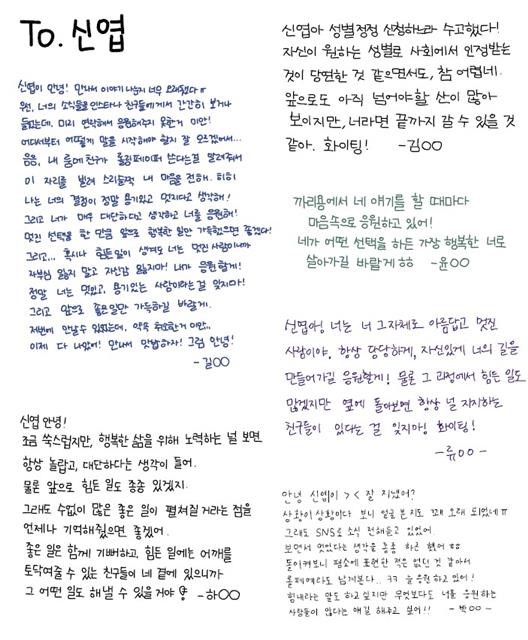 To. 신엽
신엽이 안녕! 만나서 이야기 나눈지 너무 오래됐다 ㅠ
우선, 너의 소식들을 인스타나 친구들에게서 간간히 보거나
들었는데, 미리 연락해서 응원해주지 못한거 미안!
어디서부터 어떻게 말을 시작해야 할지 잘 모르겠어서...
음음, 내 룸메 친구가 롤링페이퍼 쓴다는걸 알려줘서
이 자리를 빌려 소리들쩍 내 마음을 전해. 히히
나는 너의 결정이 정말 용기있고 멋지다고 생각해!
그리고 너가 매우 대단하다고 생각하고 너를 응원해!
멋진 선택을 한 만큼 앞으로 행복한 일만 가득했으면 좋겠다!
그리고... 혹시나 힘든일이 생겨도 너는 멋진 사람이니까
자부심 잃지 말고 자신감 잃지마! 내가 응원할게!
정말 너는 멋있고, 용기있는 사람이라는 걸 잊지마!
그리고 앞으로 좋은일만 가득하길 바랄게.
저번에 만날수 있었는데, 약속 취소한거 미안..
이제 다 나았어! 만나서 맛밥하자! 그럼 안녕!
- 길○○
신엽 안녕!
조금 쑥스럽지만, 행복한 삶을 위해 노력하는 널 보면
항상 놀랍고, 대단하다는 생각이 들어.
물론 앞으로 힘든 일도 종종 있겠지.
그래도 수없이 많은 좋은 일이 펼쳐질 거라는 점을
언제나 기억해줬으면 좋겠어.
좋은 일은 함께 기뻐하고, 힘든 일에는 어깨를
토닥여줄 수 있는 친구들이 네 곁에 있으니까
그 어떤 일도 해낼 수 있을거야! - 하○○
신엽아 성별정정 신청하느라 수고했다!
자신이 원하는 성별로 사회에서 인정받는
것이 당연한 것 같으면서도, 참 어렵네.
앞으로도 아직 넘어야할 산이 많아
보이지만, 너라면 끝까지 갈 수 있을 것
같아. 화이팅! - 김○○
까리용에서 네 얘기를 할 때마다
마음속으로 응원하고 있어!
네가 어떤 선택을 하든 가장 행복한 너로
살아가길 바랄게 ㅎㅎ - 윤○○
신엽아! 너는 너 그 자체로 아름답고 멋진
사람이야. 항상 당당하게, 자신있게 너의 길을
만들어가길 응원할게! 물론 그 과정에서 힘든 일도
많겠지만 옆에 돌아보면 항상 널 지지하는
친구들이 있다는 걸 잊지마! 화이팅!
- 류○○ -
안녕 신엽이 > < 잘 지냈어?
상황이 상황이다 보니 얼굴 본지도 꽤 오래 되었네ㅠ
그래도 SNS로 소식 전해듣고 있었어
보면서 멋있다는 생각을 종종 하곤 했어 ㅎㅎ
돌이켜보니 평소에 표현한 적은 없던 것 같아서
롤페에라도 남겨본다.. ㅋㅋ 늘 응원하고 있어!
힘내라는 말도 하고 싶지만 무엇보다도 너를 응원하는
사람들이 많다는 얘길 해주고 싶어!! - 박○○ -